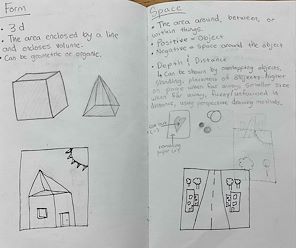 Form
• 3d
• The area enclosed by a line and encloses volume.
• Can be geometric or organic.
Space
• The area around, between, or
within things.
• Positive = Object
Negative = Space around the object
• Depth & Distance
↳ Can be shown by overlapping objects,
shading, placement of objects higher
on paper when far away, smaller size
when far away, fuzzy/unfocused in
distance, using perspective drawing methods.